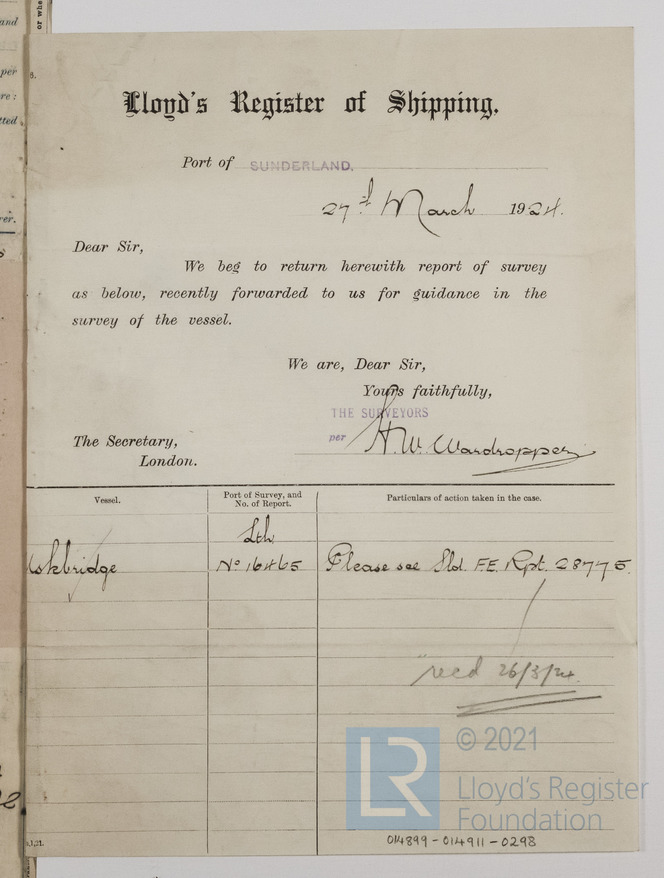 Lloyd's Register of Shipping.
Port of SUNDERLAND.
27th March 1924.
Dear Sir,
We beg to return herewith report of survey
as below, recently forwarded to us for guidance in the
survey of the vessel.
We are, Dear Sir,
Yours faithfully,
THE SURVEYORS
per H. W. Wardropper
The Secretary,
London.
Vessel. Port of Survey, and No. of Report. Particulars of action taken in the case.
Lth
Uskbridge No 16465 Please see Sld. F.E. Rpt. 28775.
recd 26/3/24.
LR © 2021
Lloyd's Register
Foundation
014899-014911-0298